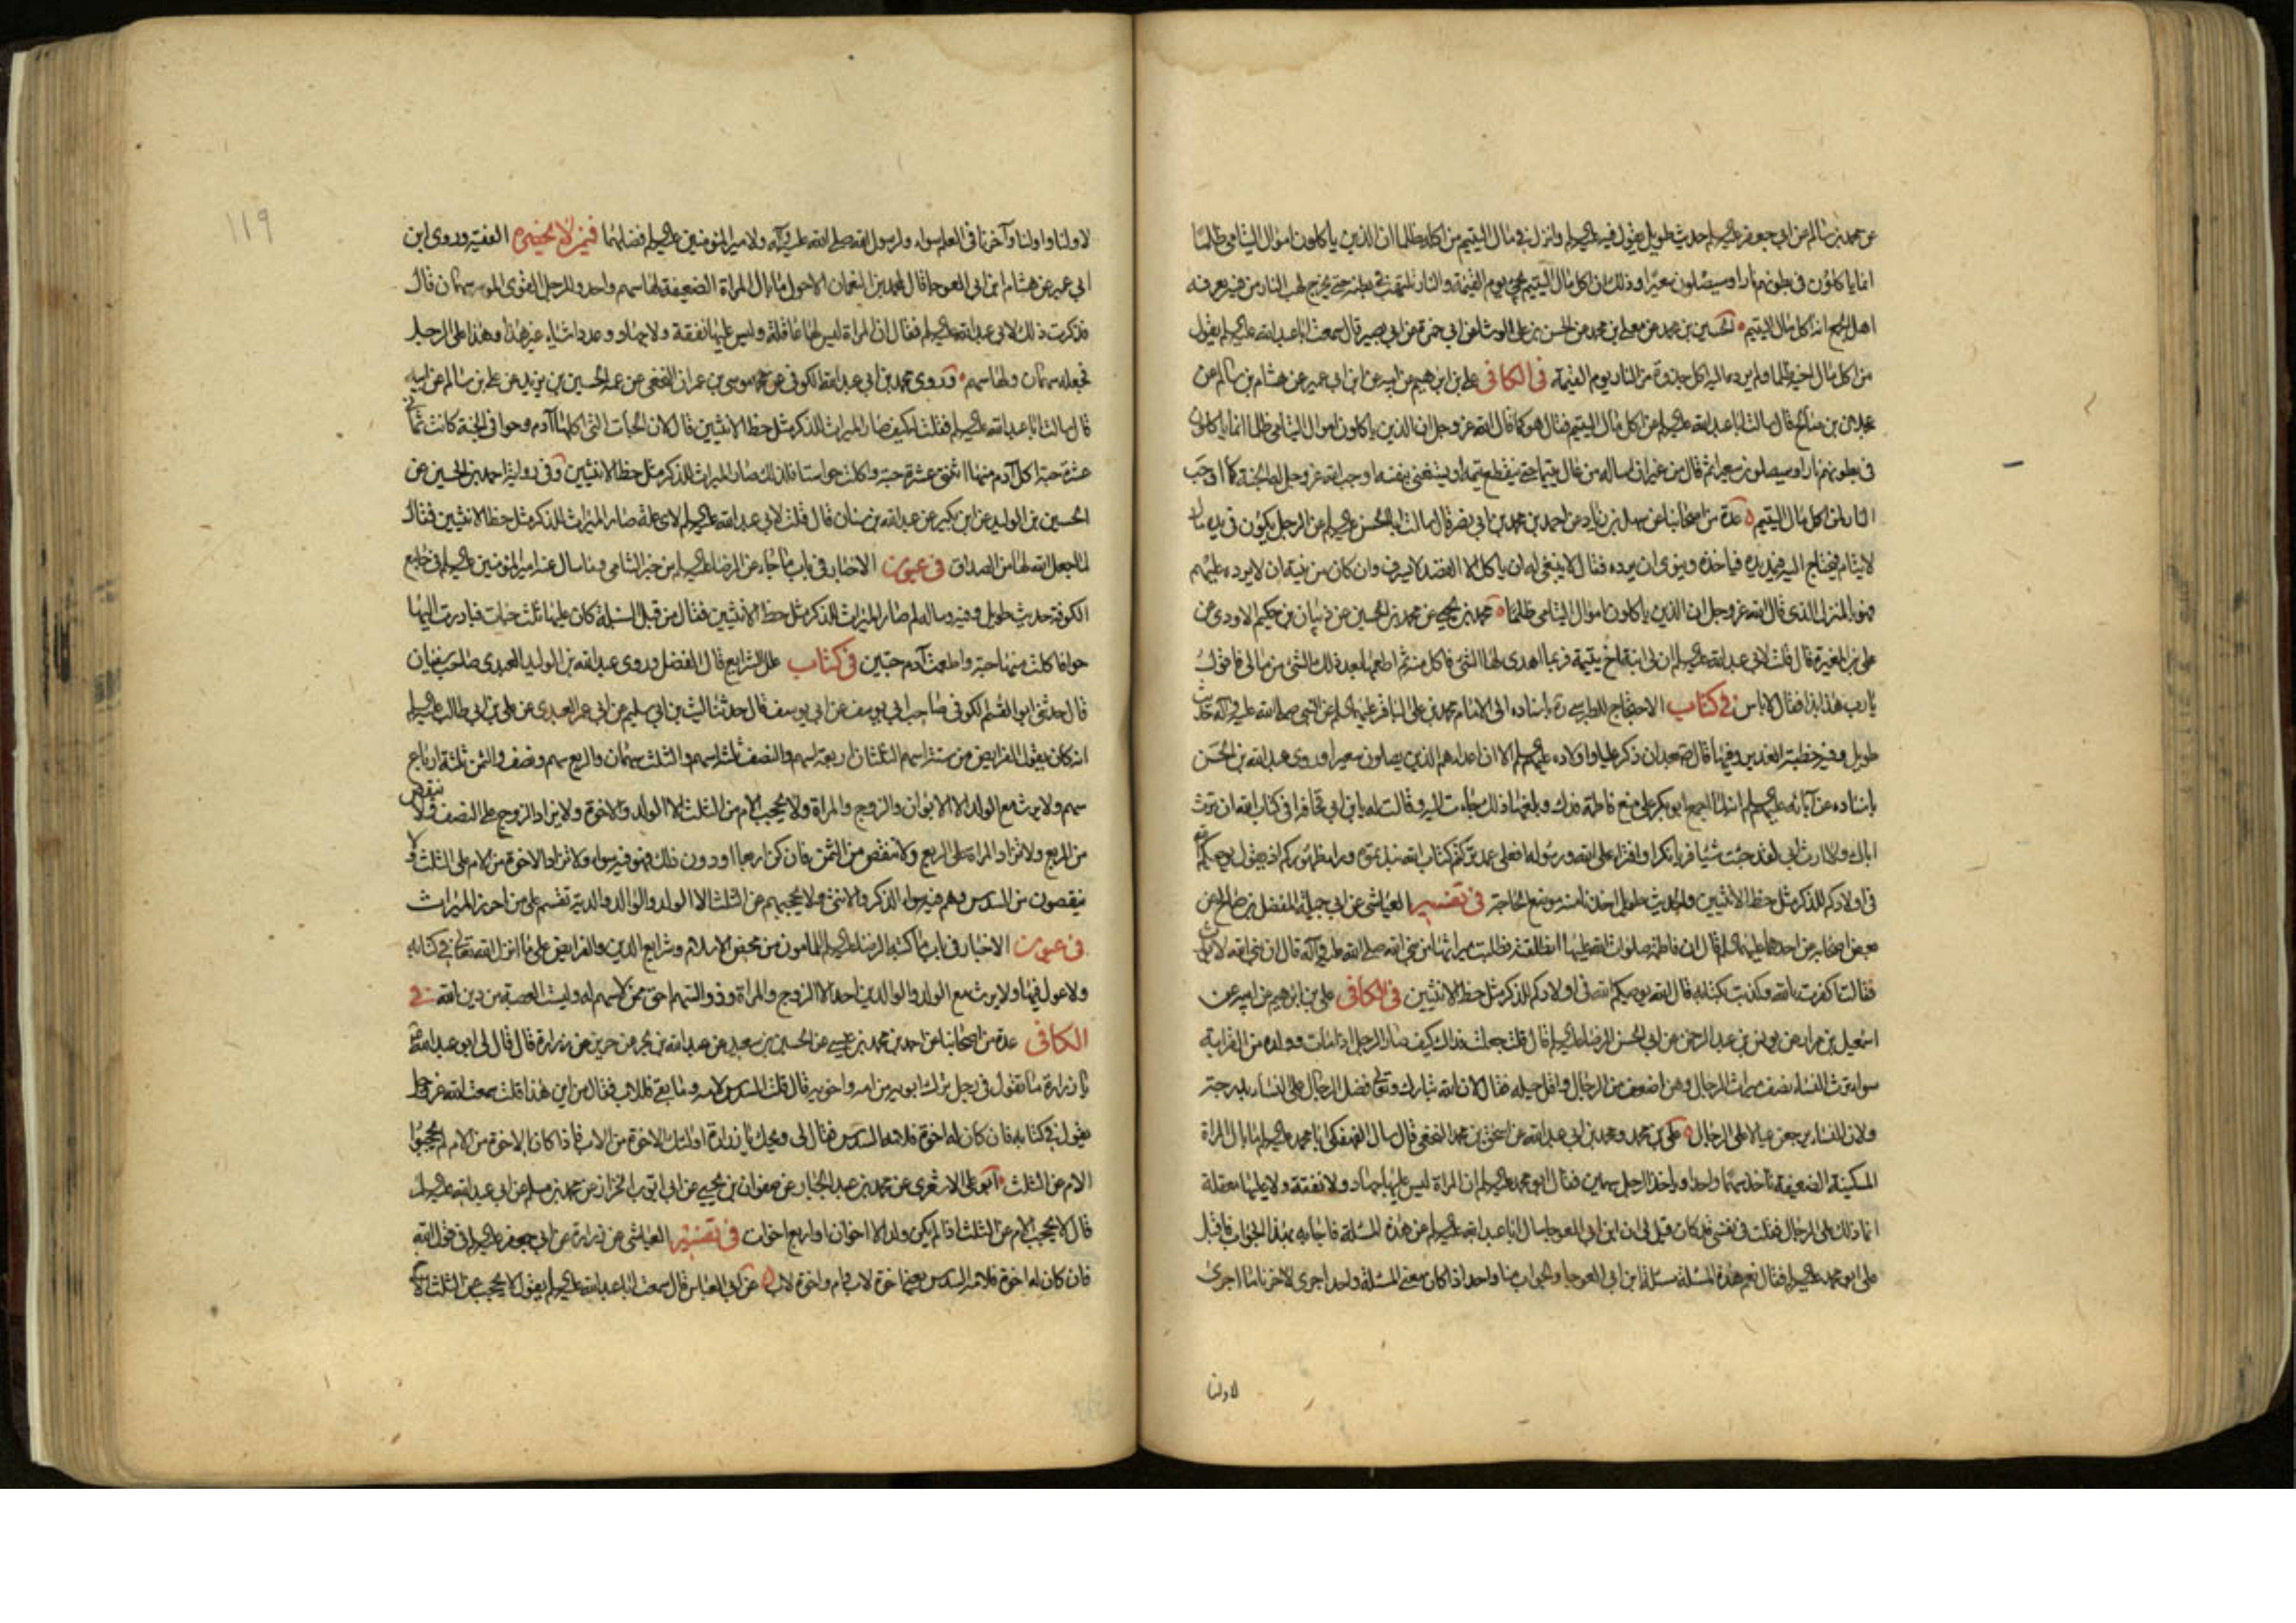 عن محمد بن سالم عن ابي جعفر عليه السلم حديث طويل يقول فيه عليه السلم وانزل في مال اليتيم من اكله ظلما ان الذين ياكلون اموال اليتامى ظلما
انما ياكلون في بطونهم نارا وسيصلون سعيرا وذلك ان اكل مال اليتيم يجئ يوم القيمة والنار تلتهب في بطنه حتى يخرج لهب النار من فيه يعرفه
اهل الجمع انه اكل مال اليتيم الحسين بن محمد عن معلى بن محمد عن الحسن بن على الوشا عن ابي حمزة عن ابي بصير قال سمعت ابا عبد الله عليه السلم يقول
من اكل مال اخيه ظلما ولم يرده اليه اكل جذوة من النار يوم القيمة في الكافي على بن ابرهيم عن ابيه عن ابن ابي عمير عن هشام بن سالم عن
عجلان بن صالح قال سالت ابا عبد الله عليه السلم عن اكل مال اليتيم فقال هو كما قال الله عز وجل ان الذين ياكلون اموال اليتامى ظلما انما ياكلون
في بطونهم نارا وسيصلون سعيرا ثم قال من غير ان اساله من عال يتيما حتى ينقطع يتمه او يستغنى بنفسه اوجب الله عز وجل له الجنة كما اوجب
النار لمن اكل مال اليتيم عدة من اصحابنا عن سهل بن زياد عن احمد بن محمد بن ابي نصر قال سالت ابا الحسن عليه السلم عن الرجل يكون في يده مال
لايتام فيحتاج اليه فيمد يده فياخذه وينوى ان يرده فقال لا ينبغى له ان ياكل الا القصد لا يسرف وان كان من نيته ان لا يرده عليهم
فهو بالمنزل الذي قال الله عز وجل ان الذين ياكلون اموال اليتامى ظلما محمد بن يحيى عن محمد بن الحسين عن ذبيان بن حكيم الاودى عن
على بن المغيرة قال قلت لابي عبد الله عليه السلم ان لى ابنة اخ يتيمة فربما اهدى لها الشئ فاكل منه ثم اطعمها بعد ذلك الشئ من مالى فاقول
يا رب هذا بذا فقال لا باس في كتاب الاحتجاج للطبرسى ره باسناده الى الامام محمد بن على الباقر عليهما السلم عن النبى صلى الله عليه وآله حديث
طويل وفيه خطبة الغدير وفيها قال بعد ان ذكر عليا واولاده عليهم السلم الا ان اعداءهم الذين يصلون سعيرا وروى عبد الله بن الحسن
باسناده عن آبائه عليهم السلم انه لما اجمع ابو بكر على منع فاطمة فدك وبلغها ذلك جاءت اليه وقالت له يا ابن ابي قحافة افى كتاب الله ان ترث
اباك ولا ارث ابى لقد جئت شيئا فريا نكرا وافتراء على الله ورسوله افعلى عمد تركتم كتاب الله ونبذتموه وراء ظهوركم اذ يقول يوصيكم الله
في اولادكم للذكر مثل حظ الانثيين والحديث طويل اخذنا منه موضع الحاجة في تفسير العياشى عن ابي جميلة المفضل بن صالح عن
بعض اصحابه عن احدهما عليهما السلم قال ان فاطمة صلوات الله عليها انطلقت فطلبت ميراثها من نبى الله صلى الله عليه وآله قال ان نبى الله لا يورث
فقالت اكفرت بالله وكذبت بكتابه قال الله يوصيكم الله في اولادكم للذكر مثل حظ الانثيين في الكافي على بن ابرهيم عن ابيه عن
اسمعيل بن مرار عن يونس بن عبد الرحمن عن ابي الحسن الرضا عليه السلم قال قلت جعلت فداك كيف صار الرجل اذا مات وولده من القرابة
سواء ترث النساء نصف ميراث الرجال وهن اضعف من الرجال واقل حيلة فقال لان الله تبارك وتعالى فضل الرجال على النساء بدرجة
ولان النساء يرجعن عيالا على الرجال على بن محمد ومحمد بن ابي عبد الله عن اسحق بن محمد النخعى قال سال الفهفكى ابا محمد عليه السلم ما بال المراة
المسكينة الضعيفة تاخذ سهما واحدا وياخذ الرجل سهمين فقال ابو محمد عليه السلم ان المراة ليس عليها جهاد ولا نفقة ولا عليها معقلة
انما ذلك على الرجال فقلت في نفسى قد كان قيل لى ان ابن ابي العوجا سال ابا عبد الله عليه السلم عن هذه المسئلة فاجابه بهذا الجواب فاقبل
على ابو محمد عليه السلم فقال نعم هذه المسئلة مسئلة ابن ابي العوجا والجواب منا واحد اذا كان معنى المسئلة واحد اجرى لاخرنا ما اجرى
لاولنا
١١٩
لاولنا واولنا وآخرنا في العلم سواء ولرسول الله صلى الله عليه وآله ولامير المؤمنين عليه السلم فضلهما فيمن لا يحضره الفقيه وروى ابن
ابي عمير عن هشام ان ابن ابي العوجا قال لمحمد بن النعمان الاحول ما بال المراة الضعيفة لها سهم واحد وللرجل القوى الموسر سهمان قال
فذكرت ذلك لابي عبد الله عليه السلم فقال ان المراة ليس لها عاقلة وليس عليها نفقة ولا جهاد وعدد اشياء غير هذا وهذا على الرجل
فجعل له سهمان ولها سهم وروى محمد بن ابي عبد الله الكوفى عن موسى بن عمران النخعى عن عمه الحسين بن يزيد عن على بن سالم عن ابيه
قال سالت ابا عبد الله عليه السلم فقلت له كيف صار الميراث للذكر مثل حظ الانثيين قال لان الحبات التى اكلها آدم وحوا في الجنة كانت ثمانى
عشرة حبة اكل آدم منها اثنتى عشرة حبة واكلت حوا ستا فلذلك صار الميراث للذكر مثل حظ الانثيين وفي رواية احمد بن الحسين عن
الحسين بن الوليد عن ابن بكير عن عبد الله بن سنان قال قلت لابي عبد الله عليه السلم لاى علة صار الميراث للذكر مثل حظ الانثيين فقال
لما جعل الله لها من الصداق في عيون الاخبار في باب ما جاء عن الرضا عليه السلم من خبر الشامى وما سال عنه امير المؤمنين عليه السلم في جامع
الكوفة حديث طويل وفيه وساله لم صار الميراث للذكر مثل حظ الانثيين فقال من قبل السنبلة كان عليها ثلث حبات فبادرت اليها
حوا فاكلت منها حبة واطعمت آدم حبتين في كتاب علل الشرايع قال الفضل وروى عبد الله بن الوليد العبدى صاحب سفيان
قال حدثنى ابو القسم الكوفى صاحب ابي يوسف عن ابي يوسف قال حدثنا ليث بن ابي سليم عن ابي عمر العبدى عن على بن ابي طالب عليه السلم
انه كان يقول الفرايض من ستة اسهم الثلثان اربعة اسهم والنصف ثلثة اسهم والثلث سهمان والربع سهم ونصف والثمن ثلثة ارباع
سهم ولا يرث مع الولد الا الابوان والزوج والمراة ولا يحجب الام من الثلث الا الولد والاخوة ولا يزاد الزوج على النصف ولا ينقص
من الربع ولا تزاد المراة على الربع ولا تنقص من الثمن فان كن اربعا او دون ذلك فهن فيه سواء ولا تزاد الاخوة من الام على الثلث ولا
ينقصون من السدس وهم فيه سواء الذكر والانثى ولا يحجبهم عن الثلث الا الولد والوالد والدية تقسم على من احرز الميراث
في عيون الاخبار في باب ما كتبه الرضا عليه السلم للمامون من محض الاسلام وشرايع الدين والفرايض على ما انزل الله تعالى في كتابه
ولا عول فيها ولا يرث مع الولد والوالدين احد الا الزوج والمراة وذو السهم احق ممن لا سهم له وليست العصبة من دين الله في
الكافي عدة من اصحابنا عن احمد بن محمد بن عيسى عن الحسين بن سعيد عن عبد الله بن بحر عن حريز عن زرارة قال قال لى ابو عبد الله عليه السلم
يا زرارة ما تقول في رجل ترك ابويه من امه واخوته قال قلت السدس لامه وما بقى فللاب فقال من اين هذا قلت سمعت الله عز وجل
يقول في كتابه فان كان له اخوة فلامه السدس فقال لى ويحك يا زرارة اولئك الاخوة من الاب فاذا كان الاخوة من الام لم يحجبوا
الام عن الثلث ابو على الاشعرى عن محمد بن عبد الجبار عن صفوان بن يحيى عن ابي ايوب الخزاز عن محمد بن مسلم عن ابي عبد الله عليه السلم
قال لا يحجب الام عن الثلث اذا لم يكن ولد الا اخوان او اربع اخوات في تفسير العياشى عن زرارة عن ابي جعفر عليه السلم في قول الله
فان كان له اخوة فلامه السدس يعنى اخوة لاب وام واخوة لاب عن ابي العباس قال سمعت ابا عبد الله عليه السلم يقول لا يحجب عن الثلث الا